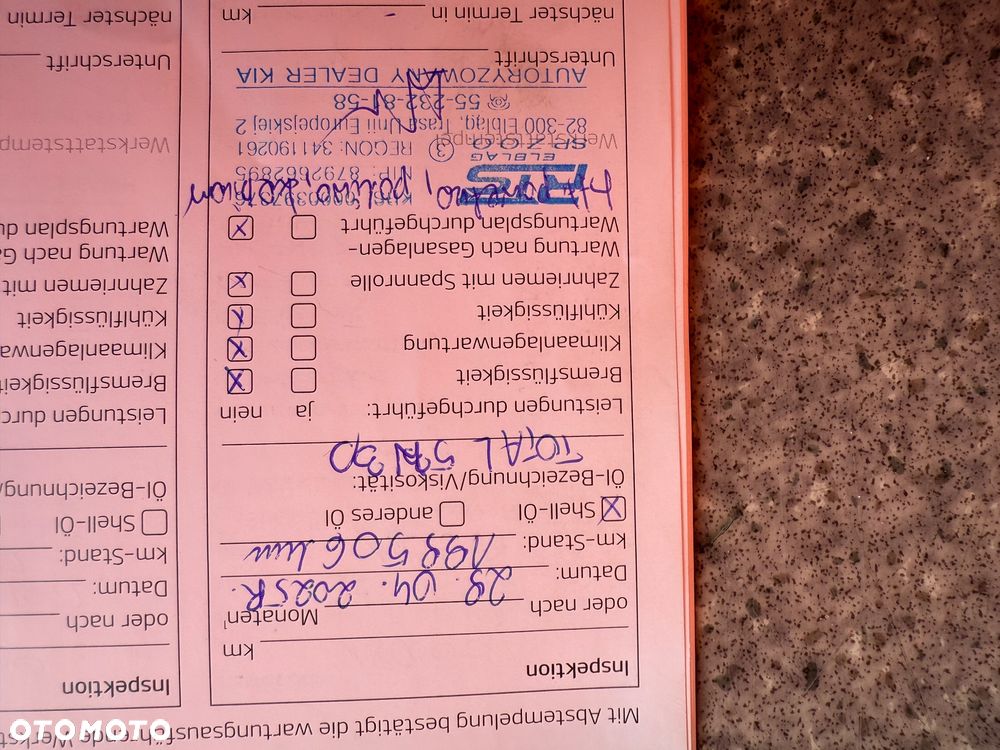 Mit Abstempelung bestätigt die wartungsausführende Werkst
Inspektion
km
oder nach
Monaten
Datum: 29. 04. 2025R.
km-Stand:
Shell-Öl
anderes Öl
Öl-Bezeichnung/Viskosität:
TOTAL 5W30
Leistungen durchgeführt:
ja
nein
Bremsflüssigkeit
Klimaanlagenwartung
Kühlflüssigkeit
Zahnriemen mit Spannrolle
Wartung nach Gasanlagen-
Wartungsplan durchgeführt
ELBLĄG
SP. Z O.O.
NIP: 8792662895
REGON: 341190261
3
Werkstattstempel
82-300 Elbląg, Trasa Unii Europejskiej 2
55-232-81-58
AUTORYZOWANY DEALER KIA
Unterschrift
nächster Termin in
km
Inspektion
oder nach
Datum:
km-Stand:
Shell-Öl
Öl-Bezeichnung/
Leistungen durc
Bremsflüssigkeit
Klimaanlagenwa
Kühlflüssigkeit
Zahnriemen mit
Wartung nach Ga
Wartungsplan du
Werkstattstemp
Unterschrift
nächster Termin
OTOMOTO